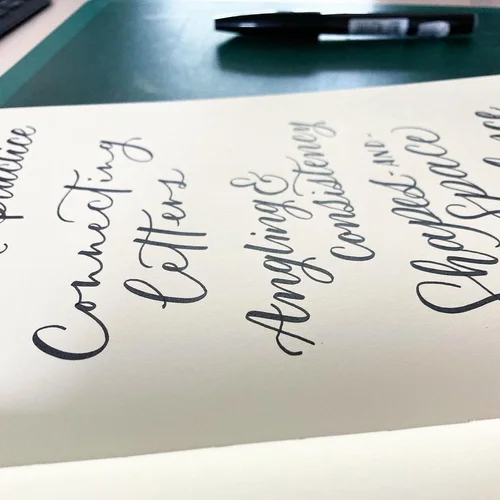 practice
Connecting
letters
Angling &
consistency
Shapes AND
space